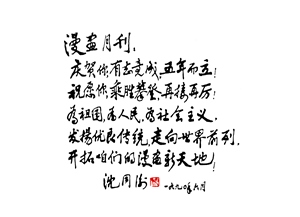 漫画月刊，
庆贺你有志竟成，五年而立！
祝愿你乘胜攀登，再接再厉！
为祖国，为人民，为社会主义，
发扬优良传统，走向世界前列，
开拓咱们的漫画新天地！
沈同衡
一九九〇、六月